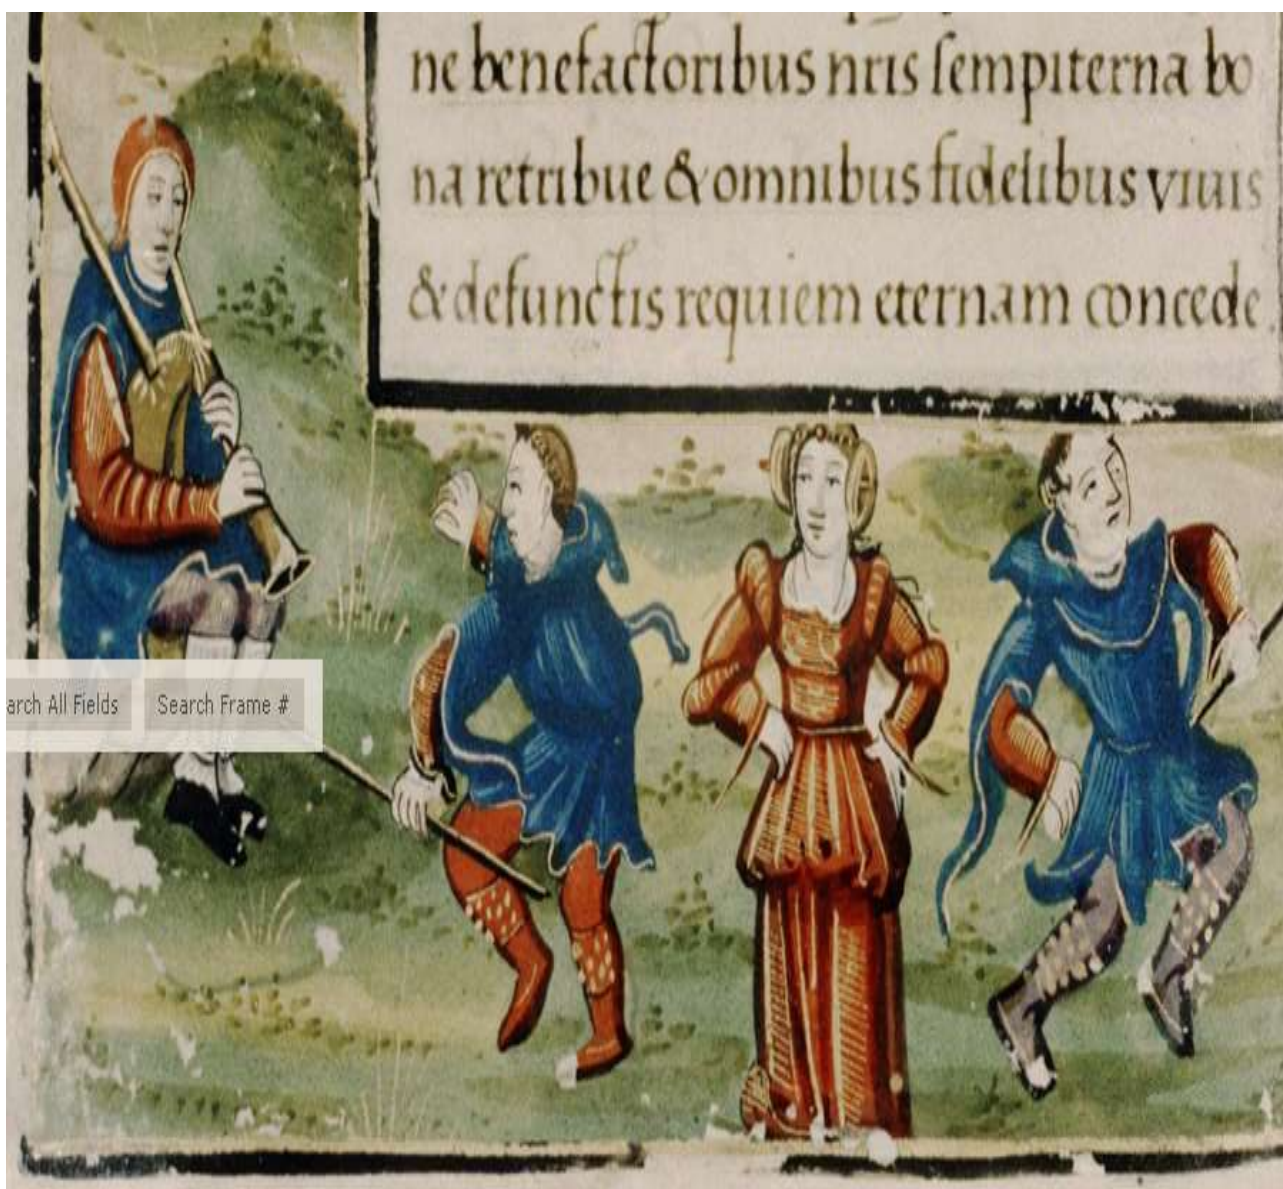 ne benefactoribus nris sempiterna bo
na retribue & omnibus fidelibus viuis
& defunctis requiem eternam concede.
arch All Fields
Search Frame #